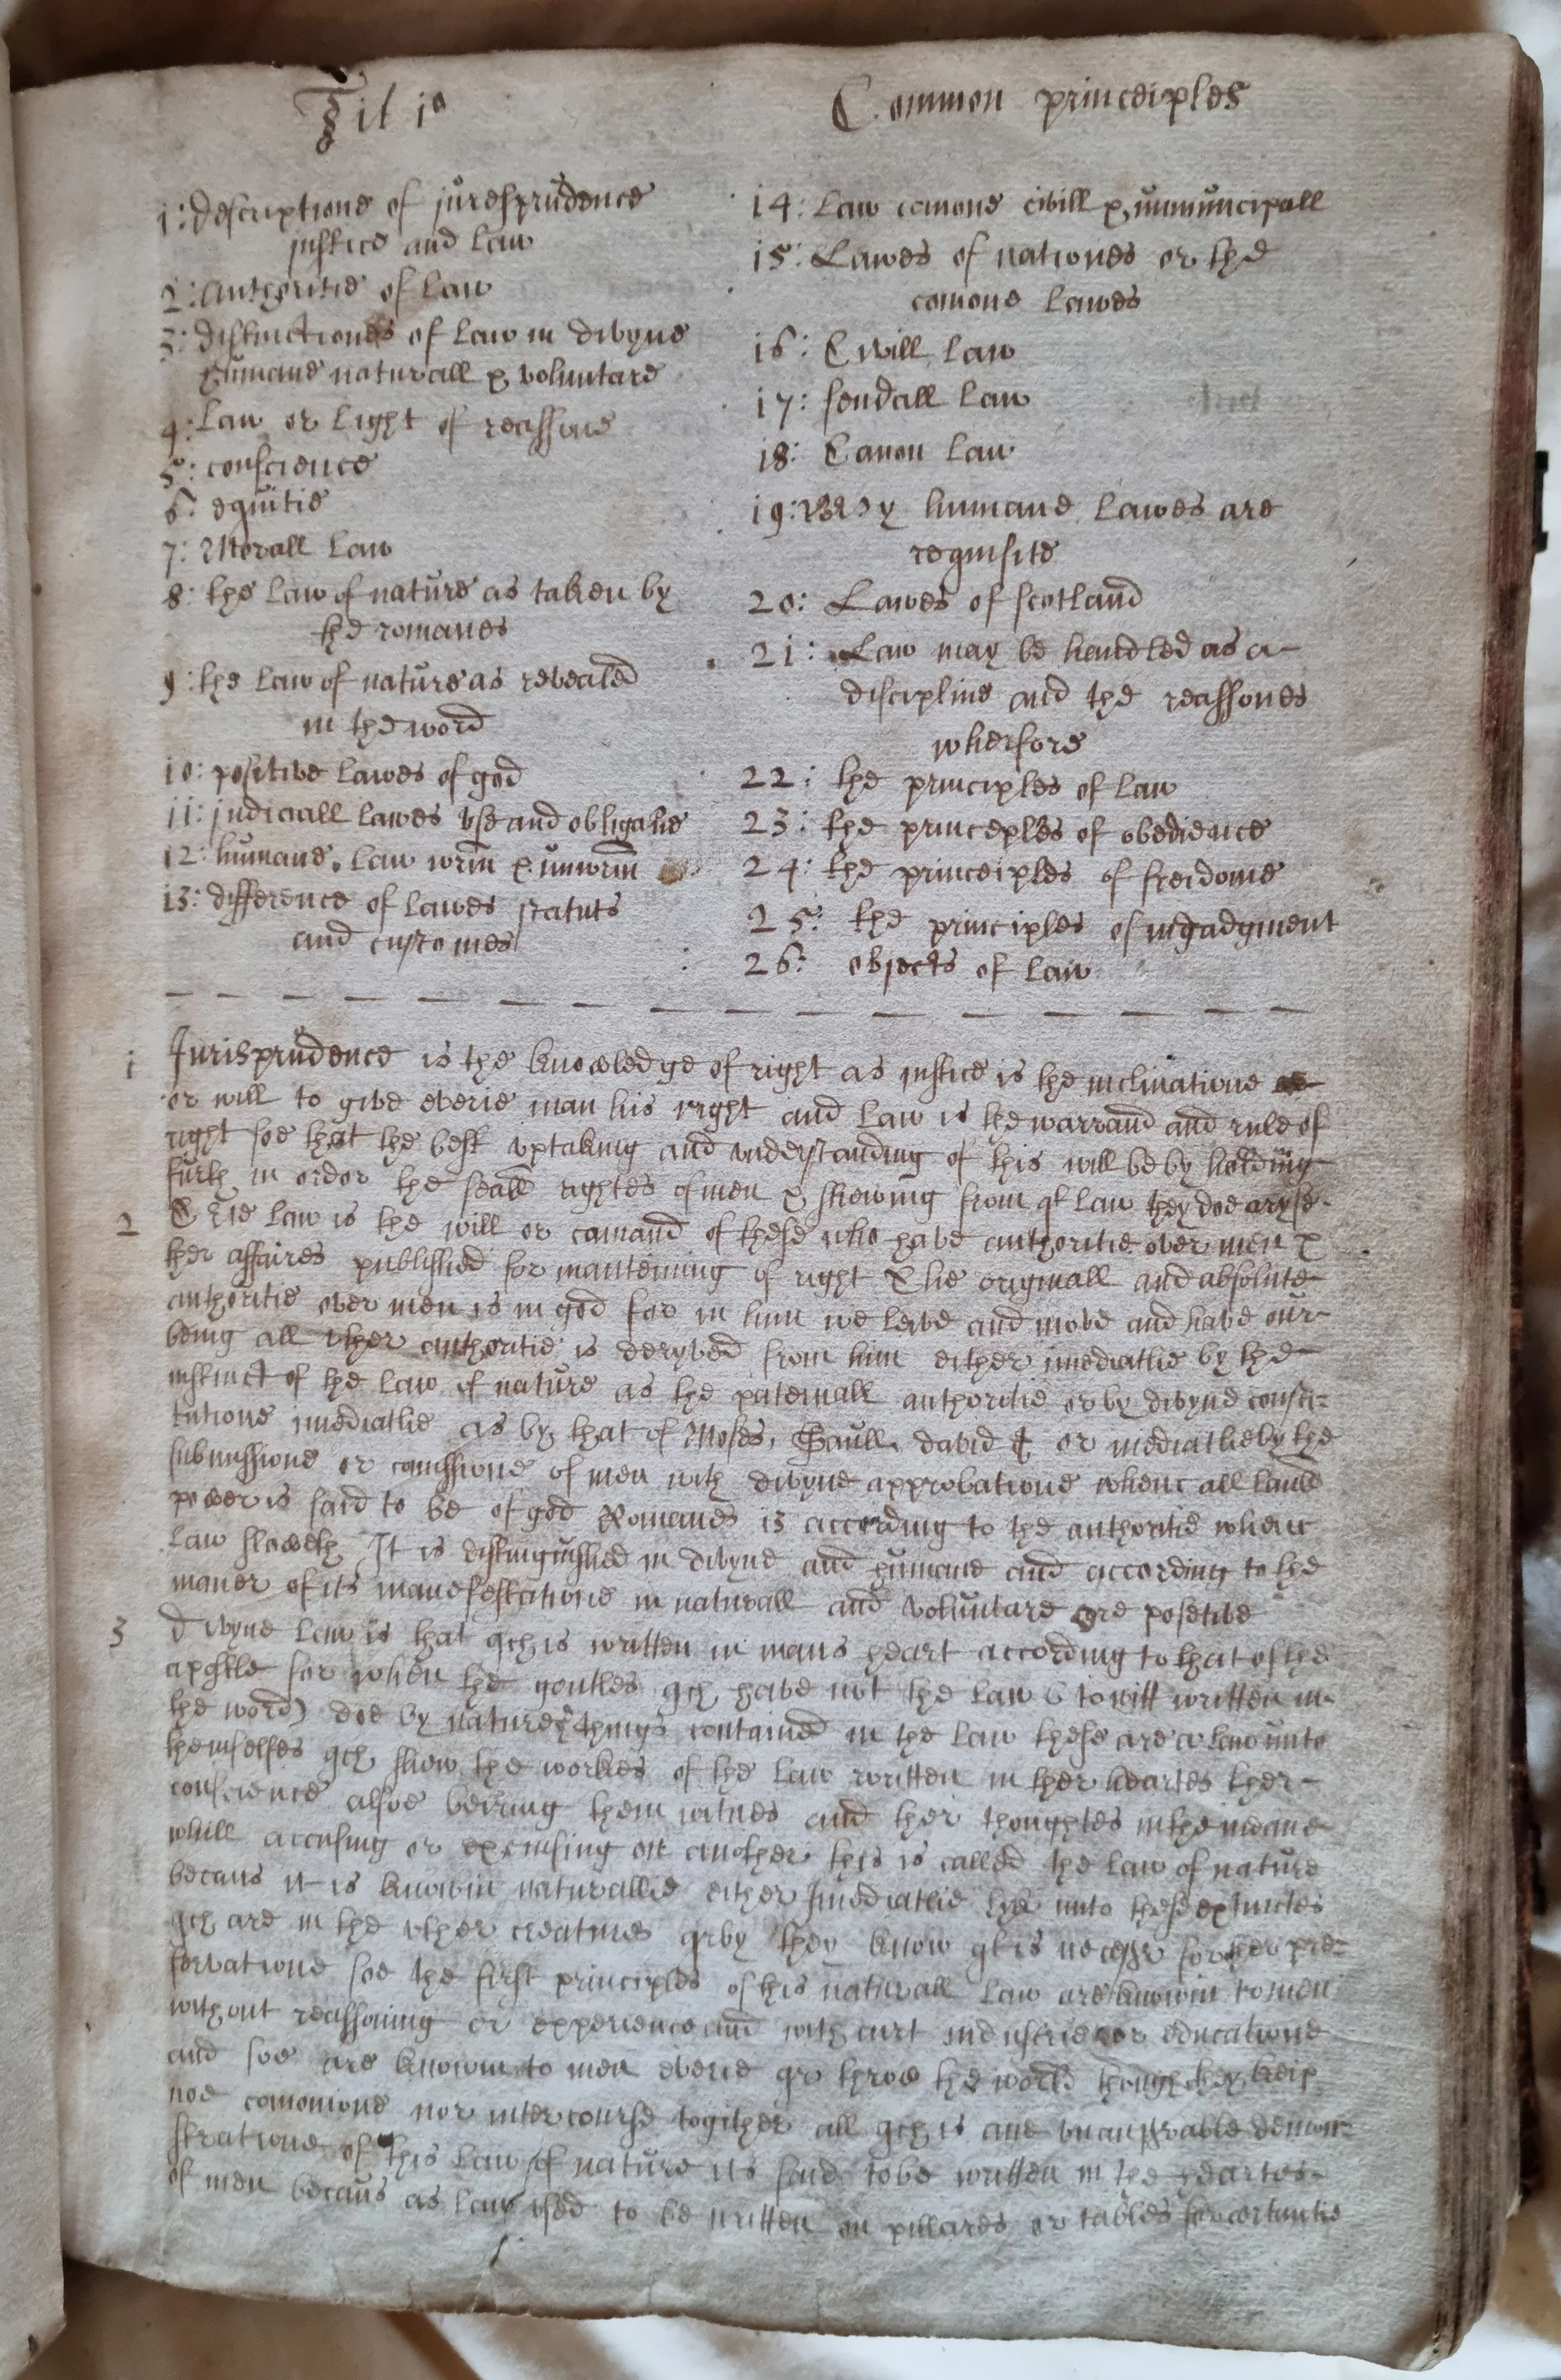 Tit 1o
Common princeiples
1: descriptione of juresprudence
justice and law
2: authoritie of law
3: distinctiones of law in divyne
humane naturall & voluntare
4: law or light of reassone
5: conscience
6: equitie
7: Morall law
8: the law of nature as taken by
the romanes
9: the law of nature as revealed
in the word
10: positive lawes of god
11: judiciall lawes vse and obligatie
12: humane law wrin & unwrin
13: difference of lawes statuts
and customes
14: law comone civill & mununcipall
15: Lawes of nationes or the
comone lawes
16: Civill law
17: feudall law
18: Canon law
19: Why humane lawes are
requisite
20: Lawes of scotland
21: Law may be handled as a
discipline and the reassones
wherfore
22: the principles of law
23: the princeples of obedience
24: the princeiples of freidome
25: the principles of ingadgment
26: objects of law
1 Jurisprudence is the knowledge of right as justice is the inclinatione
or will to give everie man his right and law is the warrand and rule of
right soe that the best vptaking and vnderstanding of this will be by holding
furth in order the seall rightes of men & shewing from qt law they doe aryse
2 The law is the will or comand of these who have authoritie over men &
ther affaires published for manteining of right The originall and absolute
authoritie over men is in god for in him we leive and move and have our
being all vther authoritie is deryved from him either imediatlie by the
instinct of the law of nature as the paternall authoritie or by divyne consti-
tutione imediatlie as by that of Moses, Saull, david & or mediatlie by the
submissione or comissione of men with divyne approbatione whenc all laud
power is said to be of god Romanes 13 according to the authoritie whenc
law floweth It is distinguished in divyne and humane and according to the
maner of its manefestatione in naturall and voluntare ore posetive
3 Divyne law is that qch is written in mans heart according to that of the
apostle for when the gentles qch have not the law (to witt written in
the word) doe by nature ye things contained in the law these are a law unto
themselfes qch shew the workes of the law written in ther heartes ther
conscience alsoe beiring them witnes and ther thoughtes in the meane
whill accusing or excusing on another this is called the law of nature
becaus it is knowin naturallie either Imediatlie lyk unto these extinctes
qch are in the vther creatures qrby they know qt is necessr for ther pre-
servatione soe the first principles of this naturall law are knowin to men
without reassoning or experience and without industrie or educatione
and soe are knowin to men everie qr throw the world though they keip
noe comonione nor intercourse togither all qch is ane vnansrable demon-
stratione of this law of nature its said to be written in the heartes
of men becaus as law vsed to be written on pillares or tables for certantie